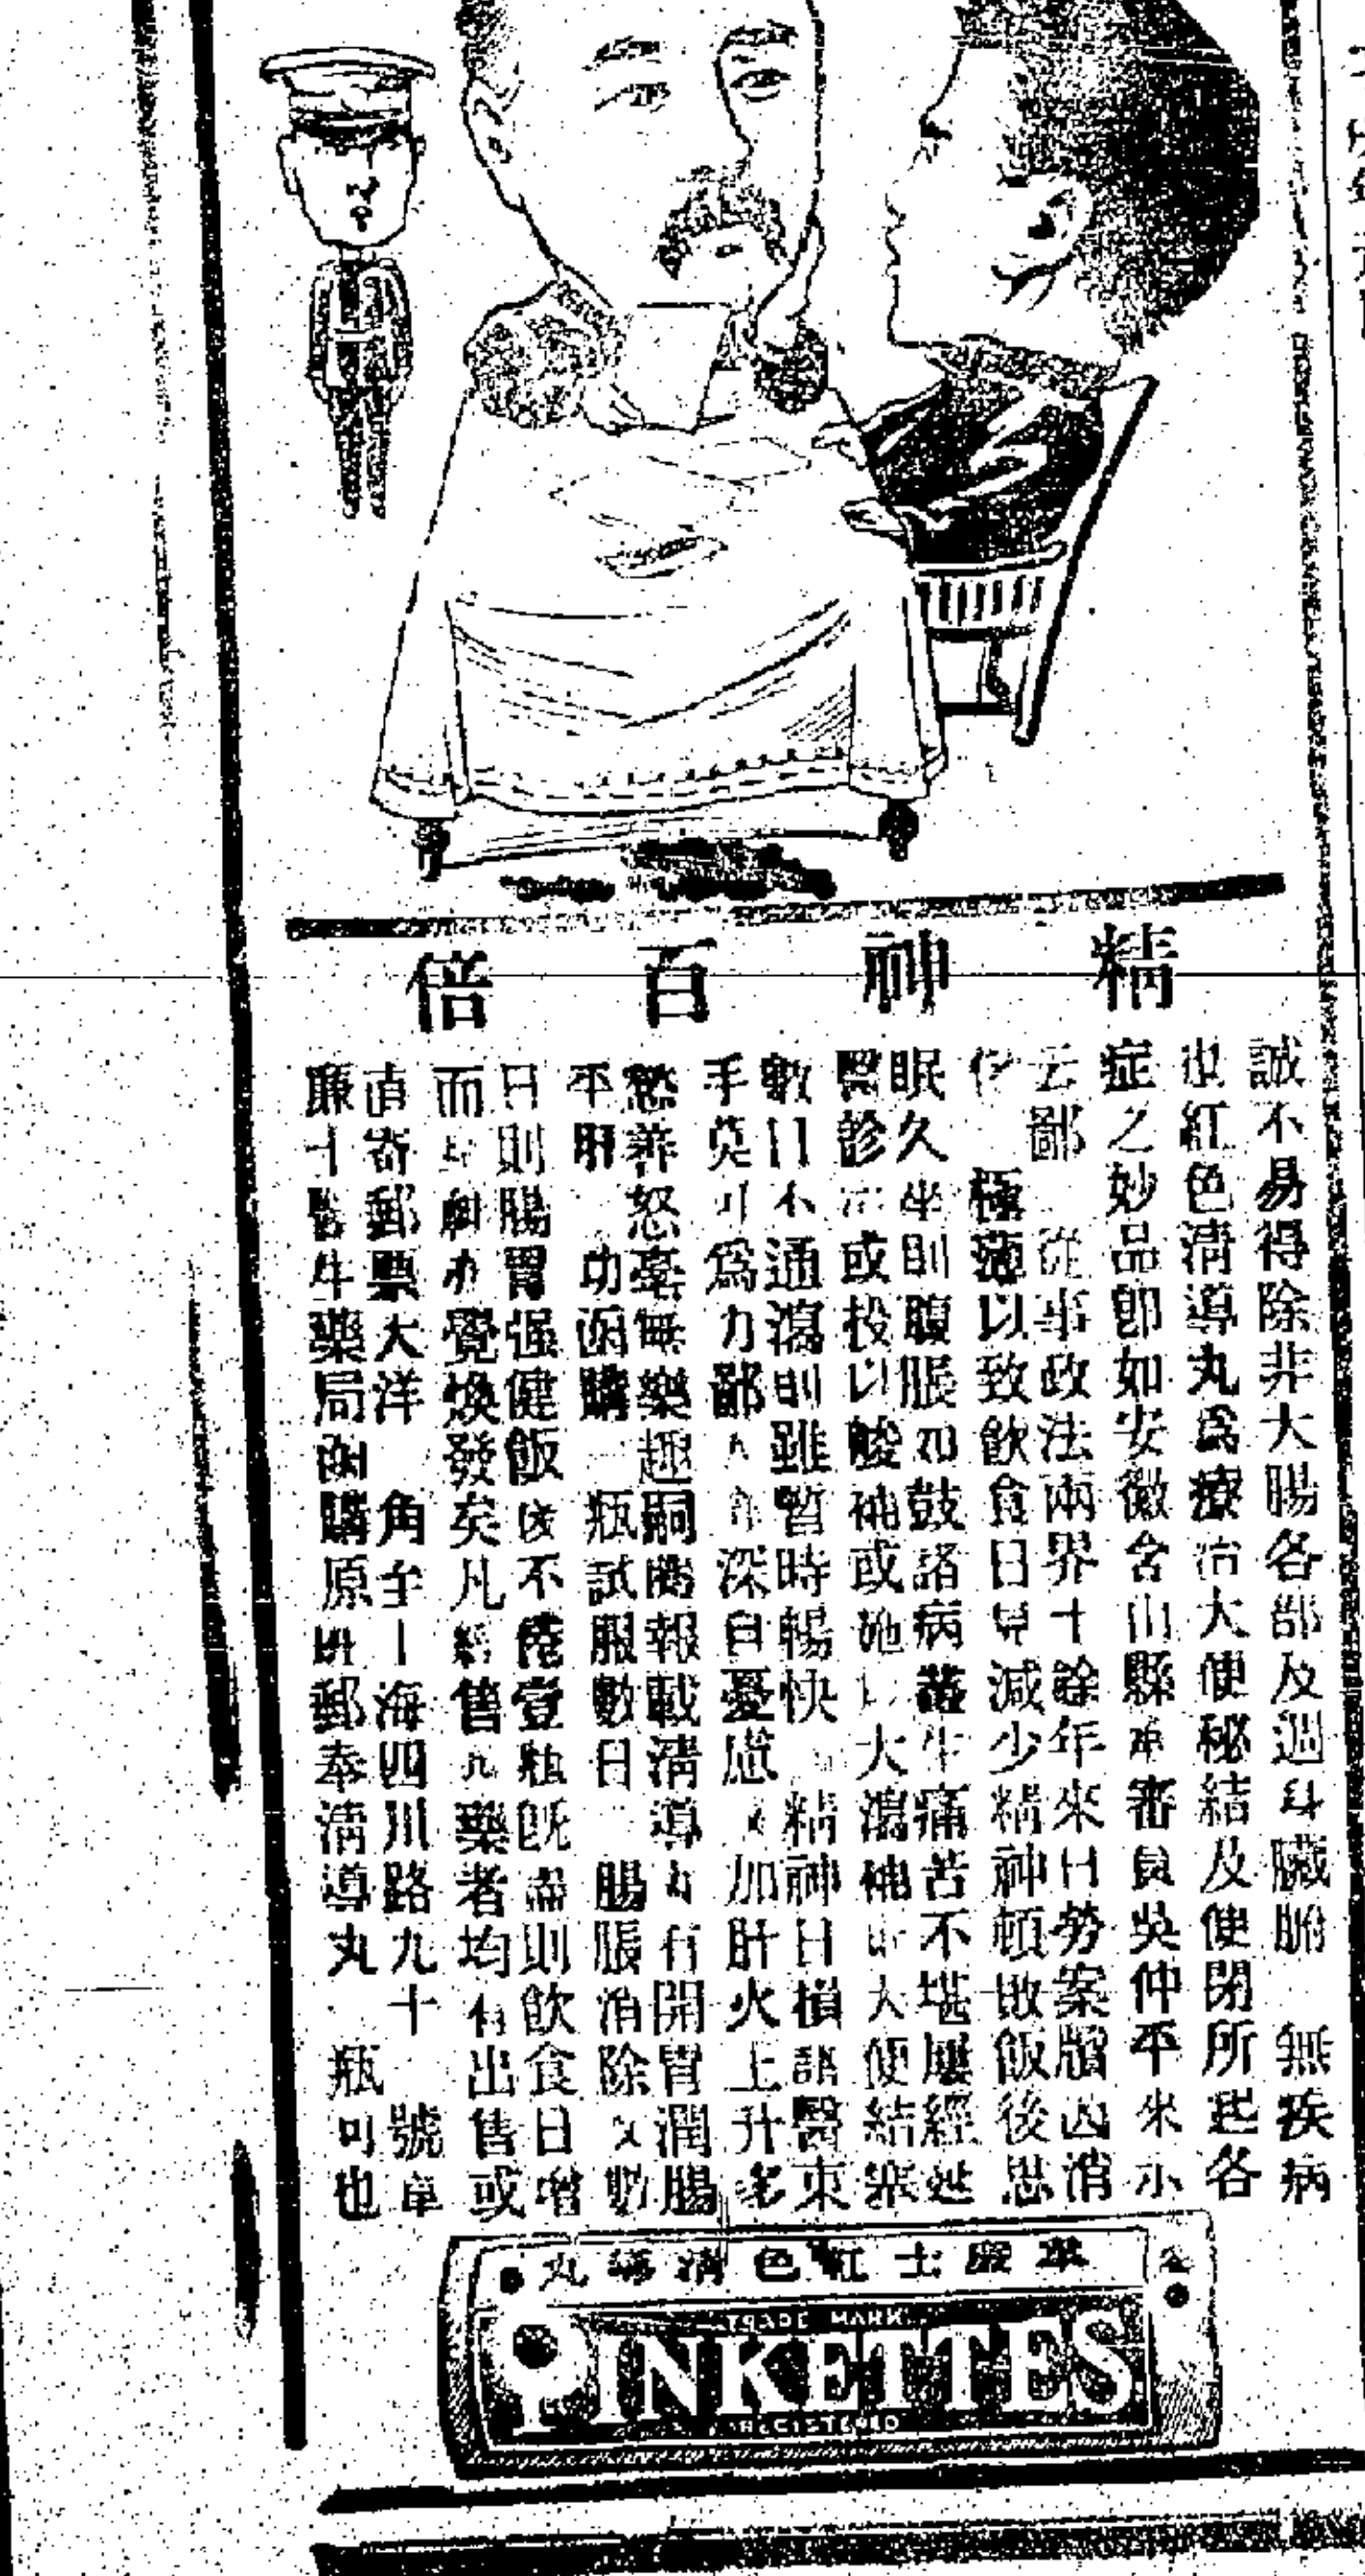 精神百倍
誠不易得除非大腸各部及週身臟腑無疾病
也紅色清導丸爲療治大便秘結及便閉所起各
症之妙品卽如安徽含山縣承審員吳仲平來示
云鄙從事政法兩界十餘年來日勞案牘因消
極以致飲食日見減少精神頓敗飯後思
眠久坐則腹脹如鼓諸病叢生痛苦不堪屢經延
醫診治或投以酸補或施以大瀉補則大便結寒
數日不通瀉則雖暫時暢快精神日損諸醫束
手莫可爲力鄙人深自憂慮又加肝火上升多
愁善怒毫無樂趣嗣閱報載清導丸有開胃潤腸
平肝功函購一瓶試服數日腸脹消除又數
日則腸胃强健飯後不倦壹瓶旣盡則飲食日增
而覺煥發矣凡經售西藥者均有出售或
直寄郵票大洋角至上海四川路九十號韋
廉士醫生藥局函購原班郵奉清導丸瓶可也
韋廉士紅色清導丸
TRADE MARK
PINKETTES
REGISTERED